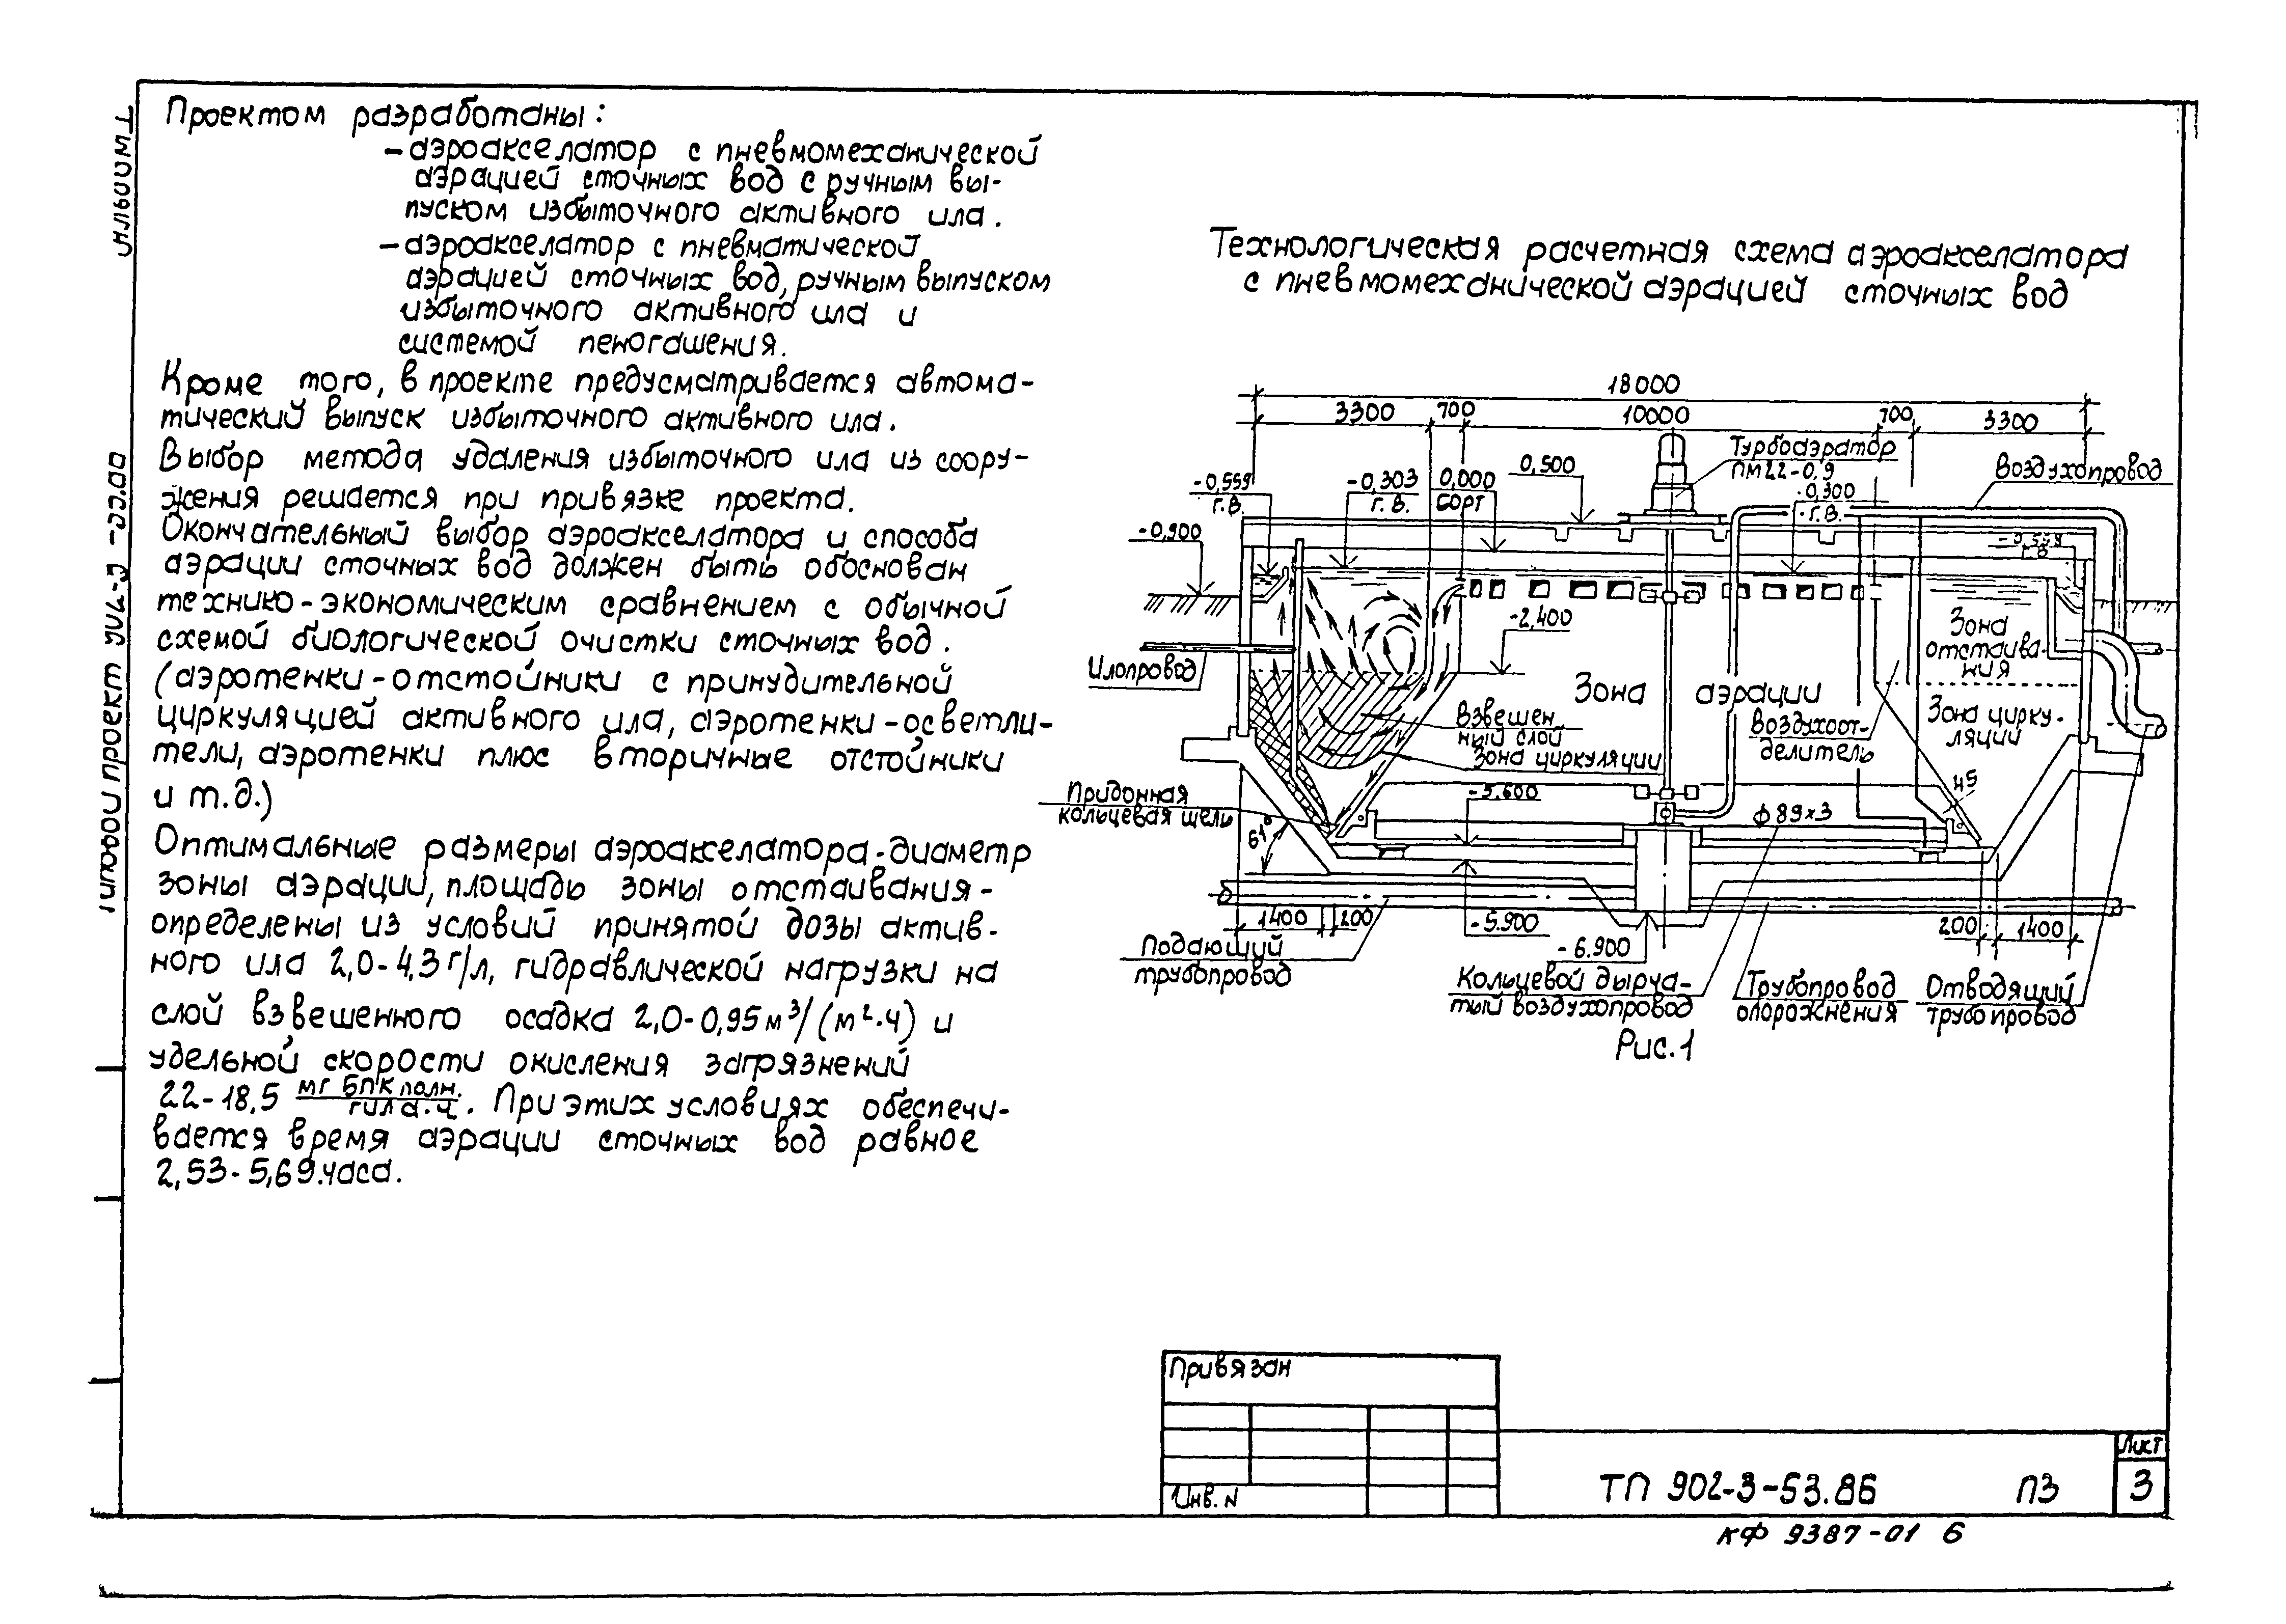 Проектом разработаны:
– аэроакселатор с пневмомеханической
аэрацией сточных вод с ручным вы-
пуском избыточного активного ила.
– аэроакселатор с пневматической
аэрацией сточных вод, ручным выпуском
избыточного активного ила и
системой пеногашения.
Кроме того, в проекте предусматривается автома-
тический выпуск избыточного активного ила.
Выбор метода удаления избыточного ила из соору-
жения решается при привязке проекта.
Окончательный выбор аэроакселатора и способа
аэрации сточных вод должен быть обоснован
технико-экономическим сравнением с обычной
схемой биологической очистки сточных вод.
(аэротенки-отстойники с принудительной
циркуляцией активного ила, аэротенки-осветли-
тели, аэротенки плюс вторичные отстойники
и т.д.)
Оптимальные размеры аэроакселатора-диаметр
зоны аэрации, площадь зоны отстаивания-
определены из условий принятой дозы актив-
ного ила 2,0-4,3 г/л, гидравлической нагрузки на
слой взвешенного осадка 2,0-0,95 м³/(м²·ч) и
удельной скорости окисления загрязнений
22-18,5 мг БПК полн./г ила.ч. При этих условиях обеспечи-
вается время аэрации сточных вод равное
2,53-5,69.часа.
Технологическая расчетная схема аэроакселатора
с пневмомеханической аэрацией сточных вод
18000
3300 700 10000 700 3300
Турбоаэратор
ПМ22-0,9
Воздухопровод
-0,559
Г.В.
-0,303
Г.В.
0,000
борт
0,500
-0,300
Г.В.
-0,900
-0,559
Г.В.
-2,400
Илопровод
Зона
отстаива-
ния
Зона аэрации
Взвешен
ный слой
Зона циркуляции
Воздухоот-
делитель
Зона цирку-
ляции
45
Придонная
кольцевая щель
61°
-5.600
ф 89×3
1400 200
-5.900
-6.900
200 1400
Подающий
трубопровод
Кольцевой дырча-
тый воздухопровод
Трубопровод
опорожнения
Отводящий
трубопровод
Рис.1
Привязан
Инв. N
ТП 902-3-53.86 ПЗ
Лист
3
КФ 9387-01 6